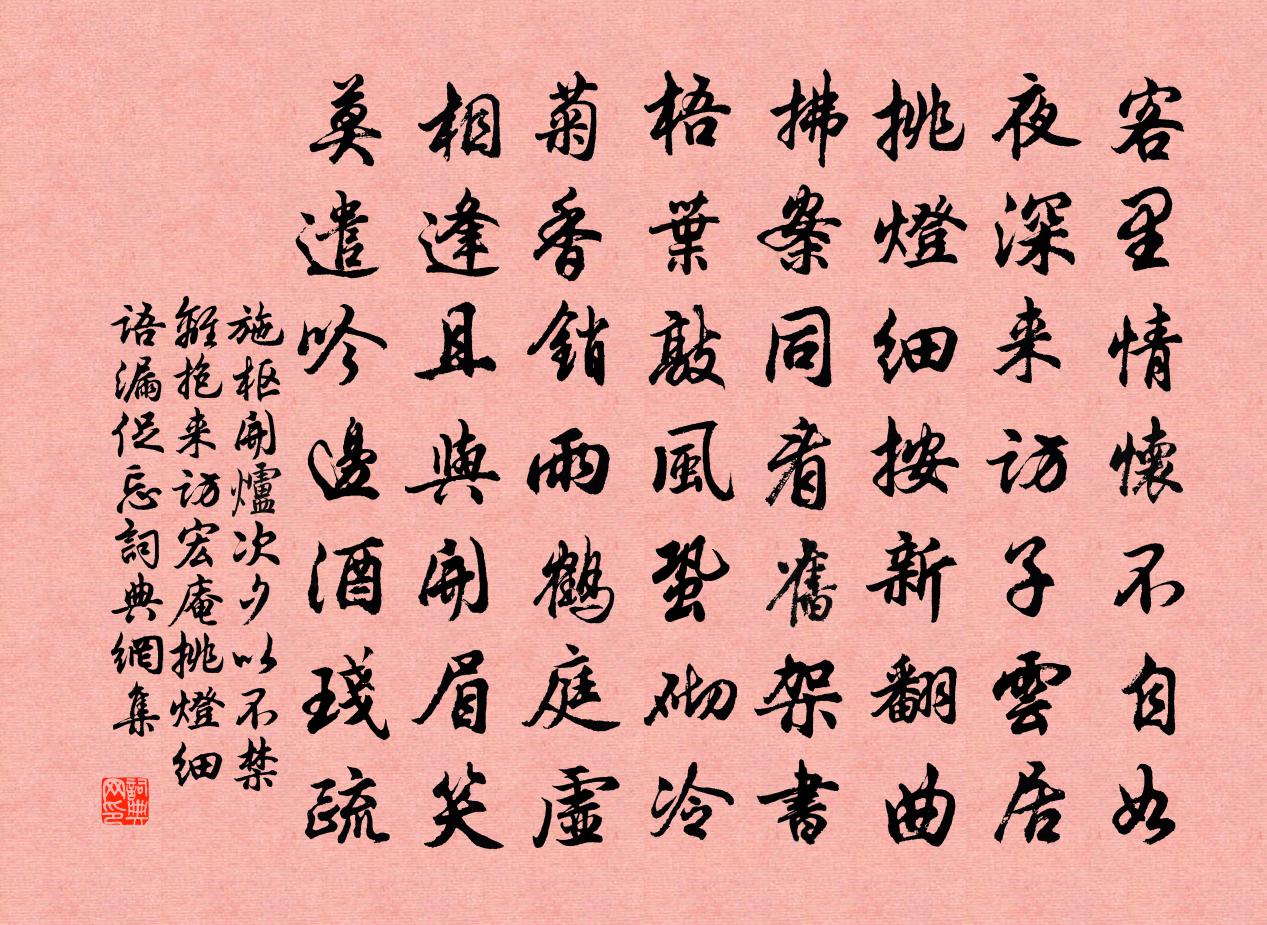 客里情懷不自如
夜深来訪子雲居
挑燈細按新翻曲
拂案同看舊架書
梧葉敲風蛩砌冷
菊香銷雨鶴庭虛
相逢且與開眉笑
莫遣吟邊酒琖疏
施枢開爐次夕以不禁
離抱来訪宏庵挑燈細
語漏促忘詞典網集
詞典
网印